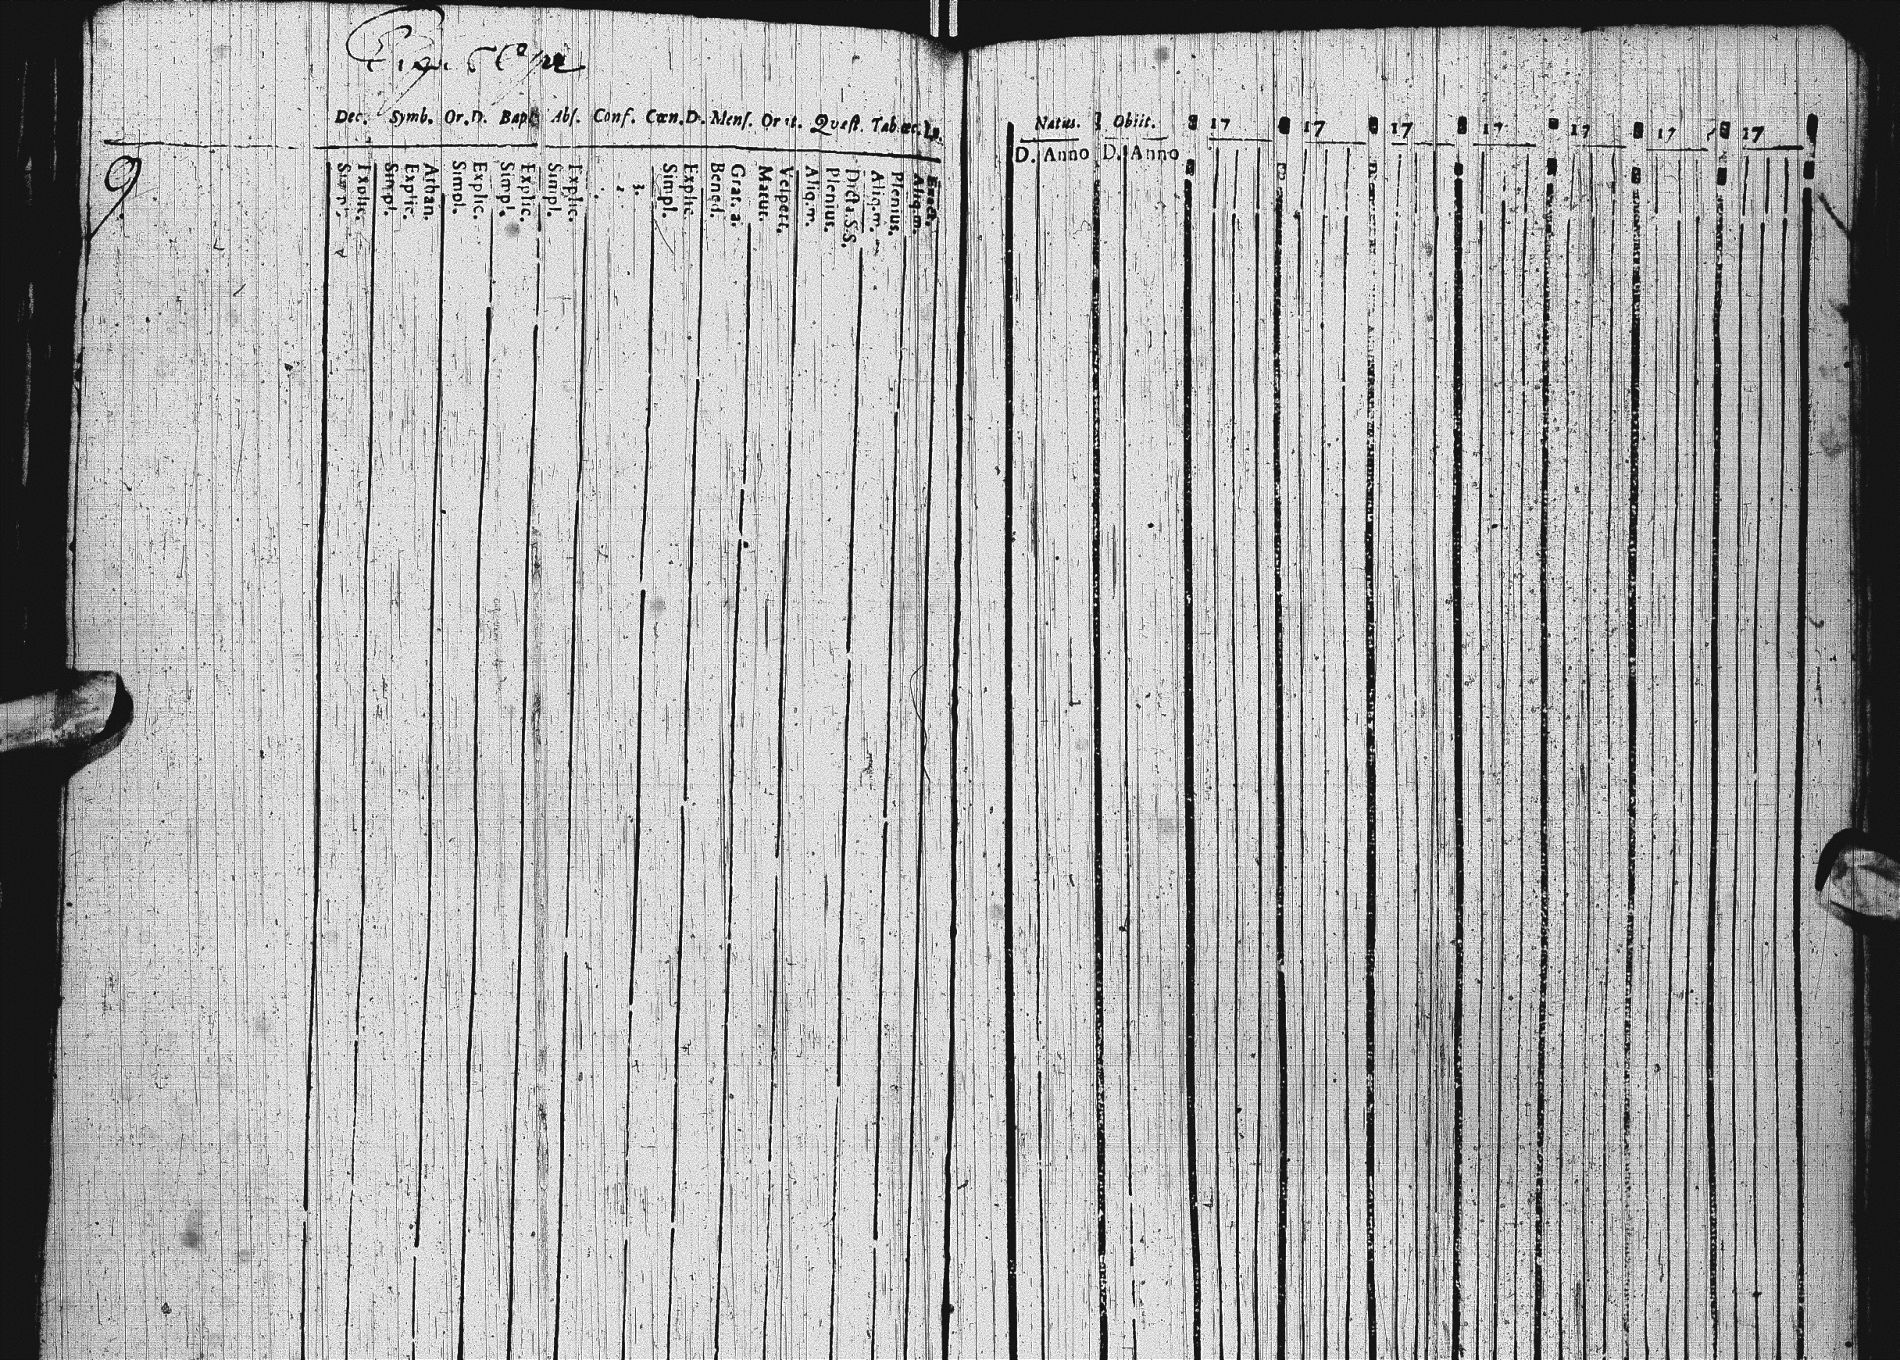 Dec. Symb. Or.D. Bapt. Abs. Conf. Cœn.D. Mens. Orat. Quæst. Tab.œc.
9
Simpl.
Explic.
Simpl.
Explic.
Athan.
Simpl.
Explic.
Simpl.
Explic.
Simpl.
Explic.
2.
3.
Simpl.
Explic.
Bened.
Grat. a.
Matut.
Vespert.
Aliq.m.
Plenius.
Dicta S.S.
Aliq.m.
Plenius.
Aliq.m.
Exact.
Natus. Obiit. 17 17 17 17 17 17 17
D. Anno D. Anno